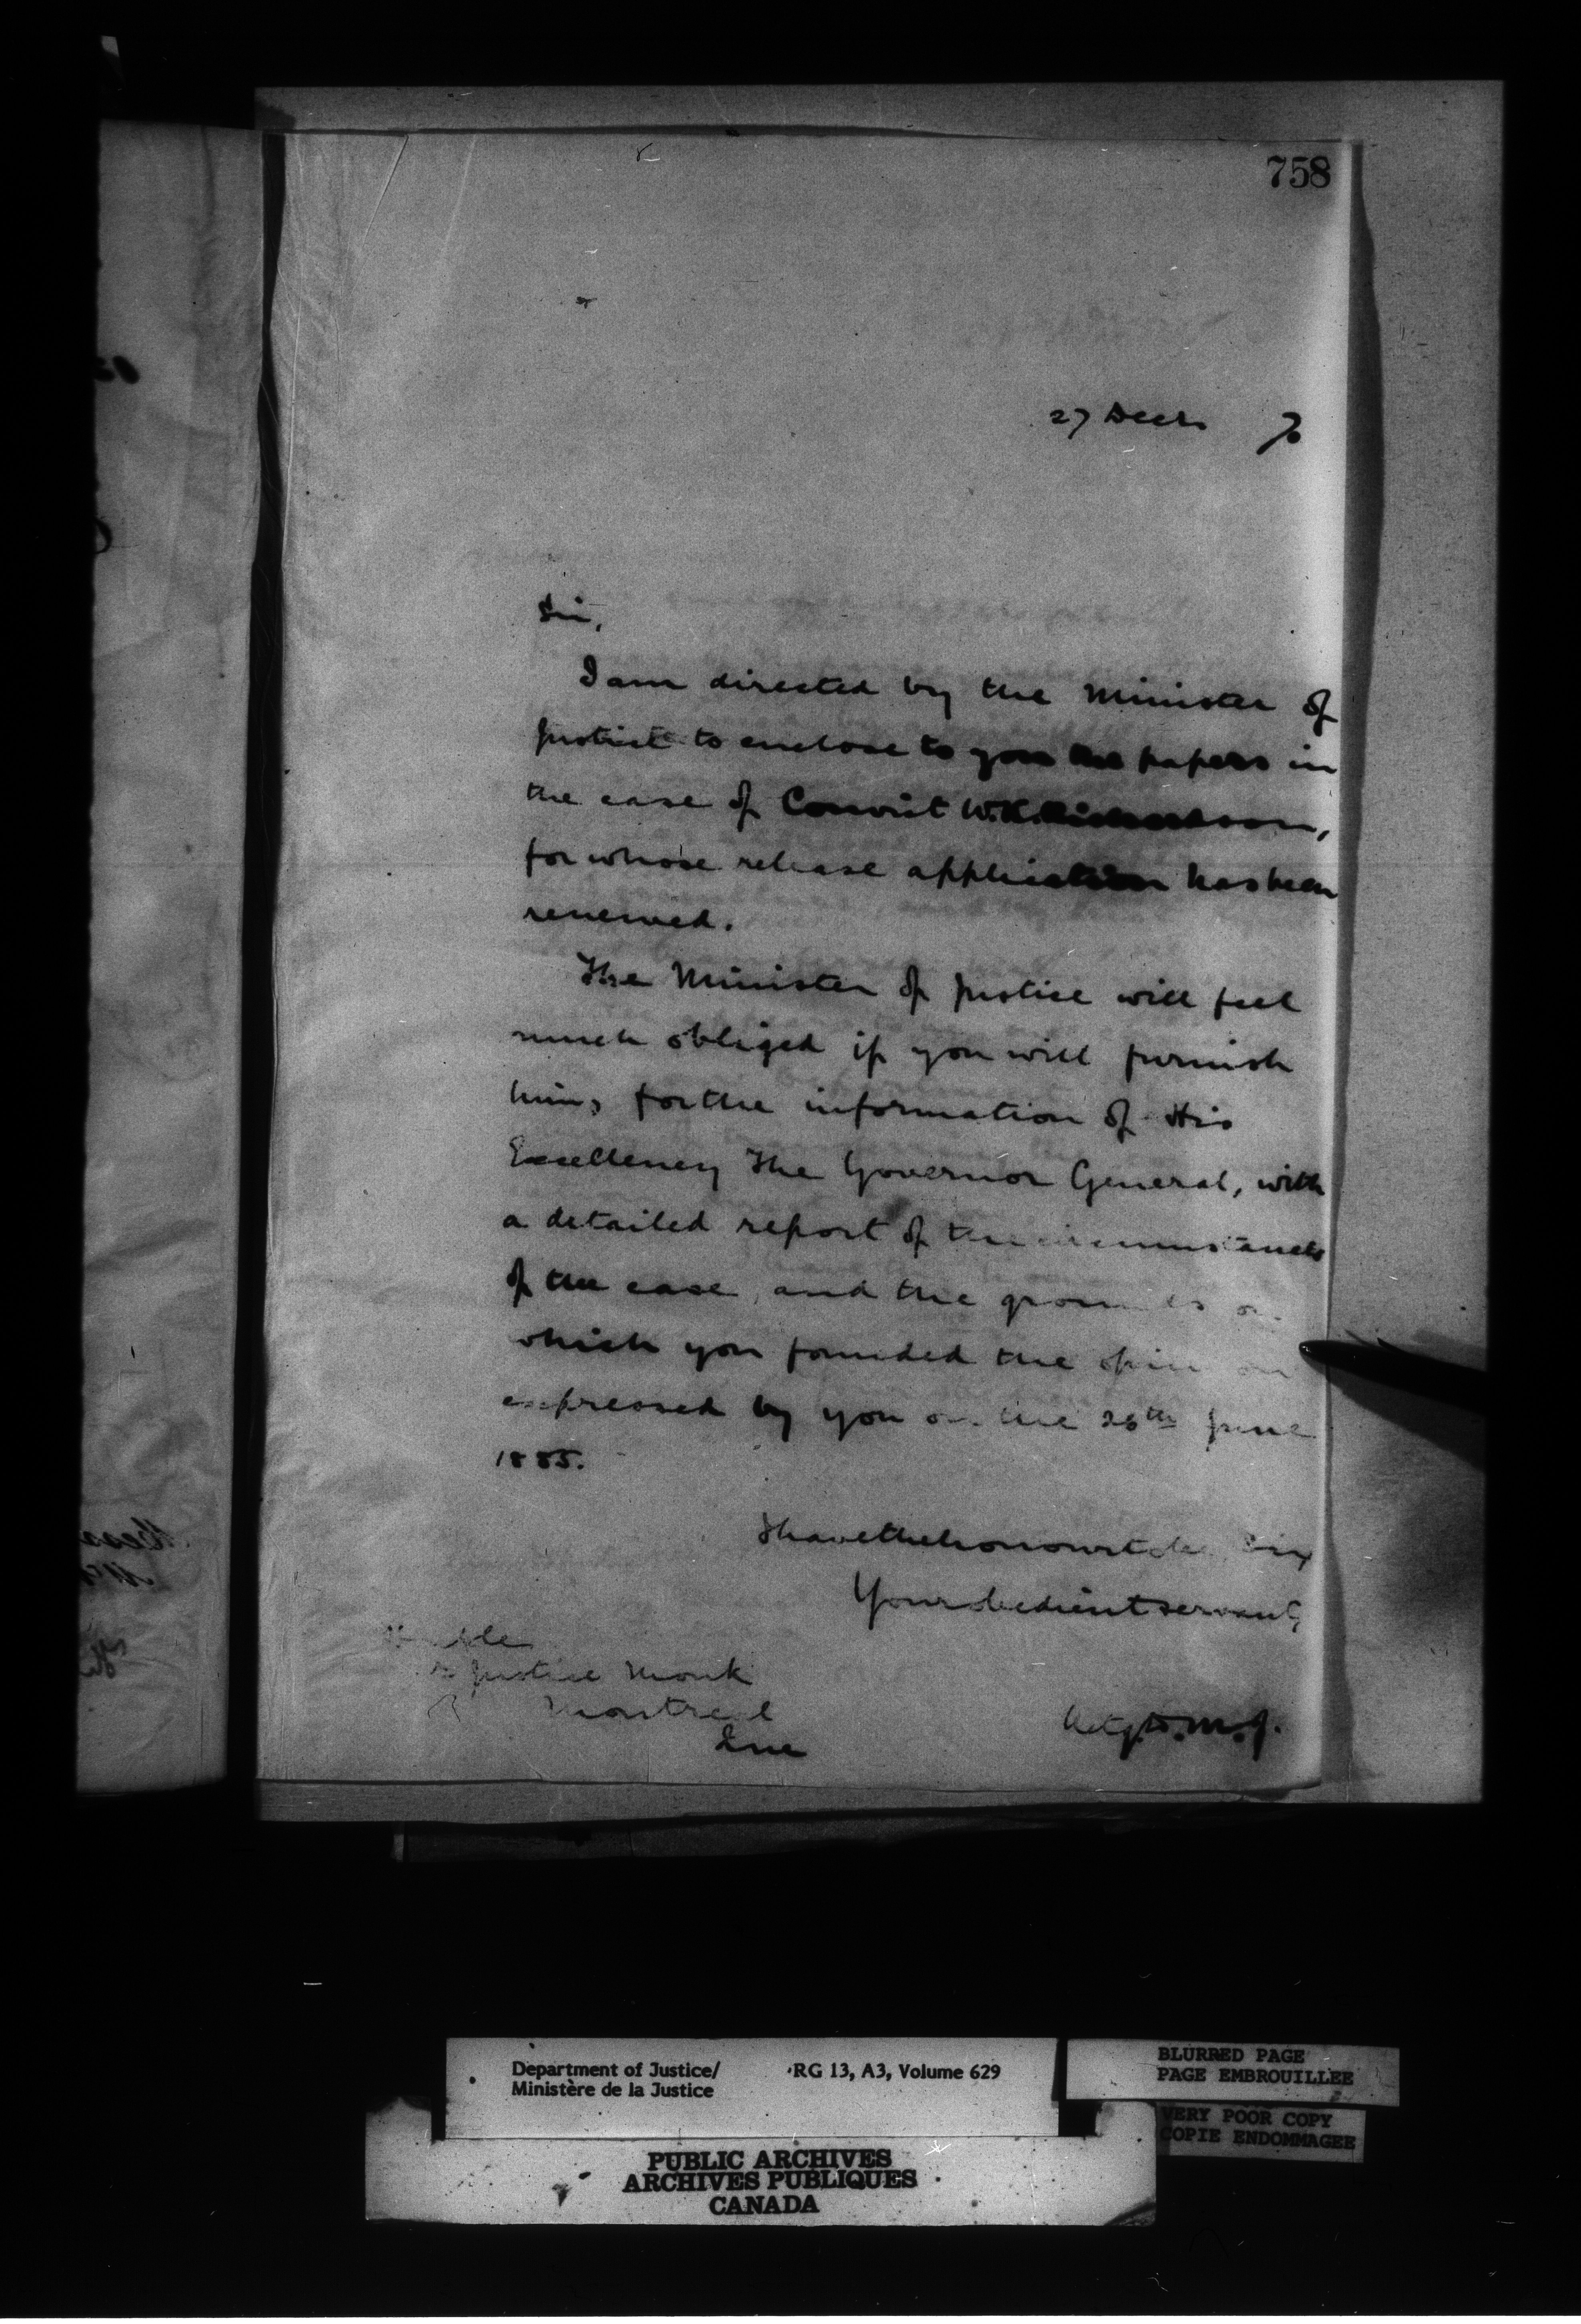 758
27 Decr 7.
Sir,
I am directed by the Minister of
Justice to enclose to you the papers in
the case of Convict W.K. Richardson,
for whose release application has been
renewed.
The Minister of Justice will feel
much obliged if you will furnish
him, for the information of His
Excellency The Governor General, with
a detailed report of the circumstances
of the case, and the grounds on
which you founded the opinion
expressed by you on the 26th June
1885.
I have the honour to be, Sir,
Your obedient servant,
Justice Monk
Montreal
Que
Actg. D.M.J.
Department of Justice/ RG 13, A3, Volume 629
Ministère de la Justice
BLURRED PAGE
PAGE EMBROUILLEE
VERY POOR COPY
COPIE ENDOMMAGEE
PUBLIC ARCHIVES
ARCHIVES PUBLIQUES
CANADA